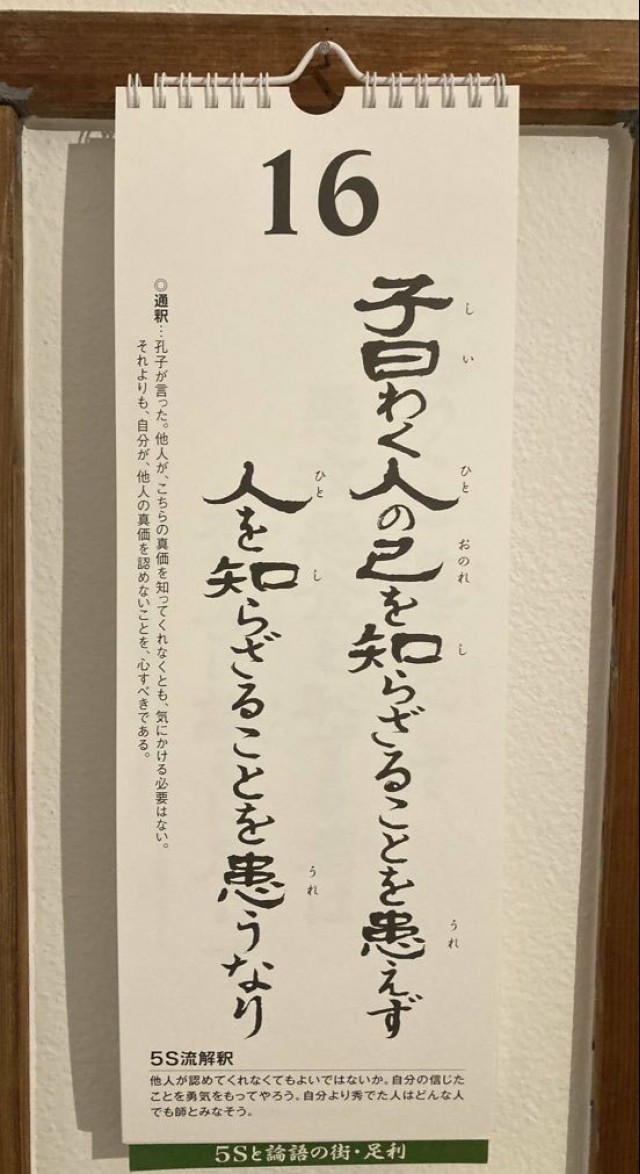 16
子曰わく人の己を知らざることを患えず
し
い
ひと
おのれ
し
うれ
人を知らざることを患うなり
ひと
し
うれ
◎通釈…孔子が言った。他人が、こちらの真価を知ってくれなくとも、気にかける必要はない。
それよりも、自分が、他人の真価を認めないことを、心すべきである。
5S流解釈
他人が認めてくれなくてもよいではないか。自分の信じた
ことを勇気をもってやろう。自分より秀でた人はどんな人
でも師とみなそう。
5Sと論語の街・足利